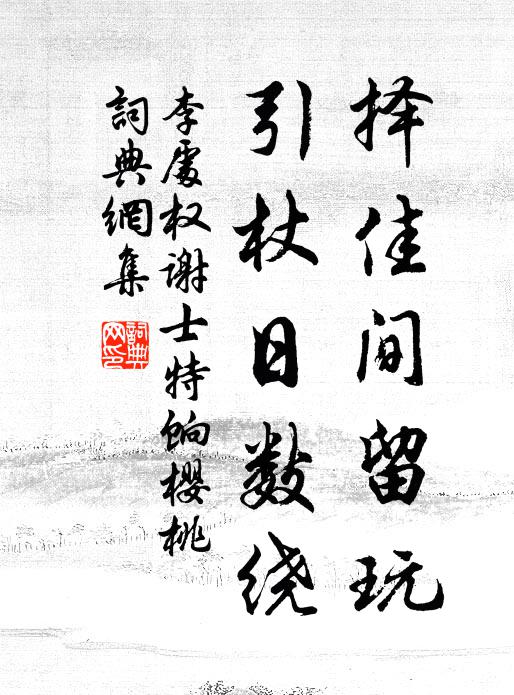 择佳间留玩
引杖日数绕
李處权谢士特饷樱桃
詞典網集
詞典
网印